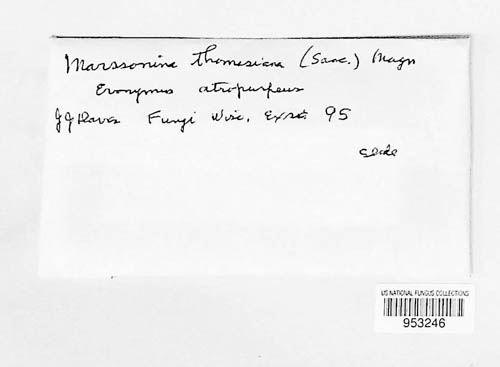 Marssonina thomasiana (Sacc.) Magn
Evonymus atropurpeus
JJ Davis Fungi Wisc. Exsic. 95
US NATIONAL FUNGUS COLLECTIONS
953246